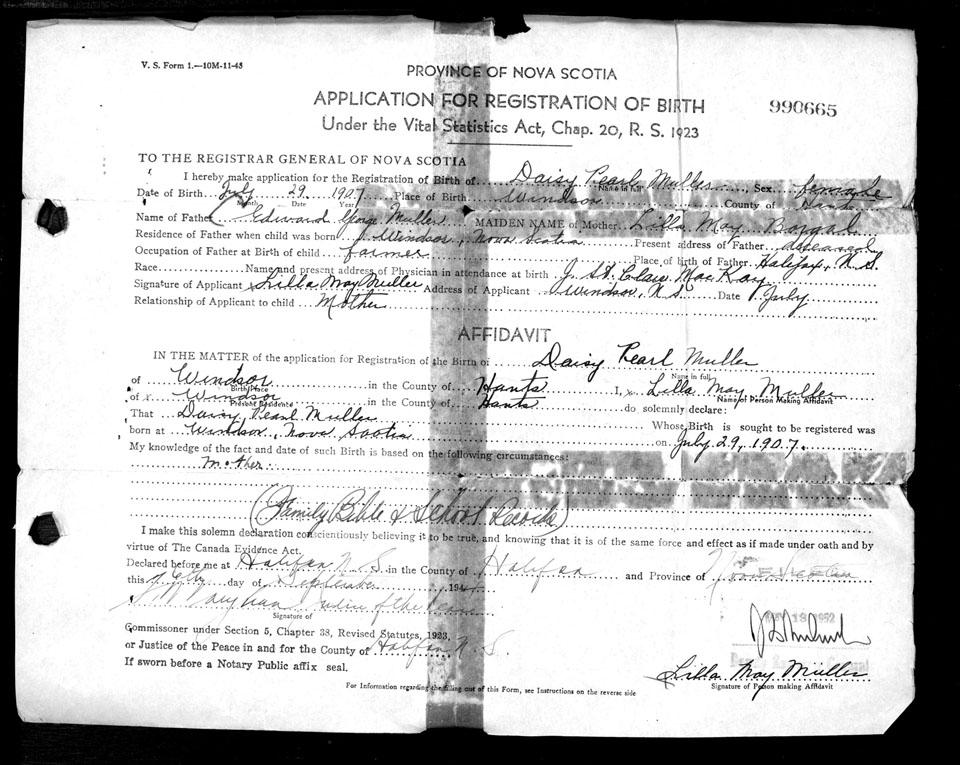 V. S. Form 1.—10M-11-43
PROVINCE OF NOVA SCOTIA
APPLICATION FOR REGISTRATION OF BIRTH
990665
Under the Vital Statistics Act, Chap. 20, R. S. 1923
TO THE REGISTRAR GENERAL OF NOVA SCOTIA
I hereby make application for the Registration of Birth of Daisy Pearl Muller Sex female
Name in full
Date of Birth July 29 1907 Place of Birth Windsor County of Hants
Month Date Year
Name of Father Edward George Muller MAIDEN NAME of Mother Lilla May
Residence of Father when child was born Windsor, Nova Scotia Present address of Father deceased
Occupation of Father at Birth of child farmer Place of birth of Father Halifax, N.S.
Race Name and present address of Physician in attendance at birth J. St. Clair MacKay
Signature of Applicant x Lilla May Muller Address of Applicant Windsor, N.S. Date July
Relationship of Applicant to child Mother
AFFIDAVIT
IN THE MATTER of the application for Registration of the Birth of Daisy Pearl Muller
Name in full
of Windsor in the County of Hants I, x Lilla May Muller
Birth Place
Name of Person Making Affidavit
of x Windsor in the County of Hants do solemnly declare:
Present Residence
That Daisy Pearl Muller Whose Birth is sought to be registered was
born at Windsor, Nova Scotia on July 29, 1907.
My knowledge of the fact and date of such Birth is based on the following circumstances:
Mother
(Family Bible & School Records)
I make this solemn declaration conscientiously believing it to be true, and knowing that it is of the same force and effect as if made under oath and by
virtue of The Canada Evidence Act.
Declared before me at Halifax N.S. in the County of Halifax and Province of Nova Scotia
this day of September 194
Justice of the Peace
Signature of
Commissioner under Section 5, Chapter 38, Revised Statutes, 1923,
or Justice of the Peace in and for the County of Halifax N.S.
If sworn before a Notary Public affix seal.
Lilla May Muller
Signature of Person making Affidavit
For Information regarding the filling out of this Form, see Instructions on the reverse side